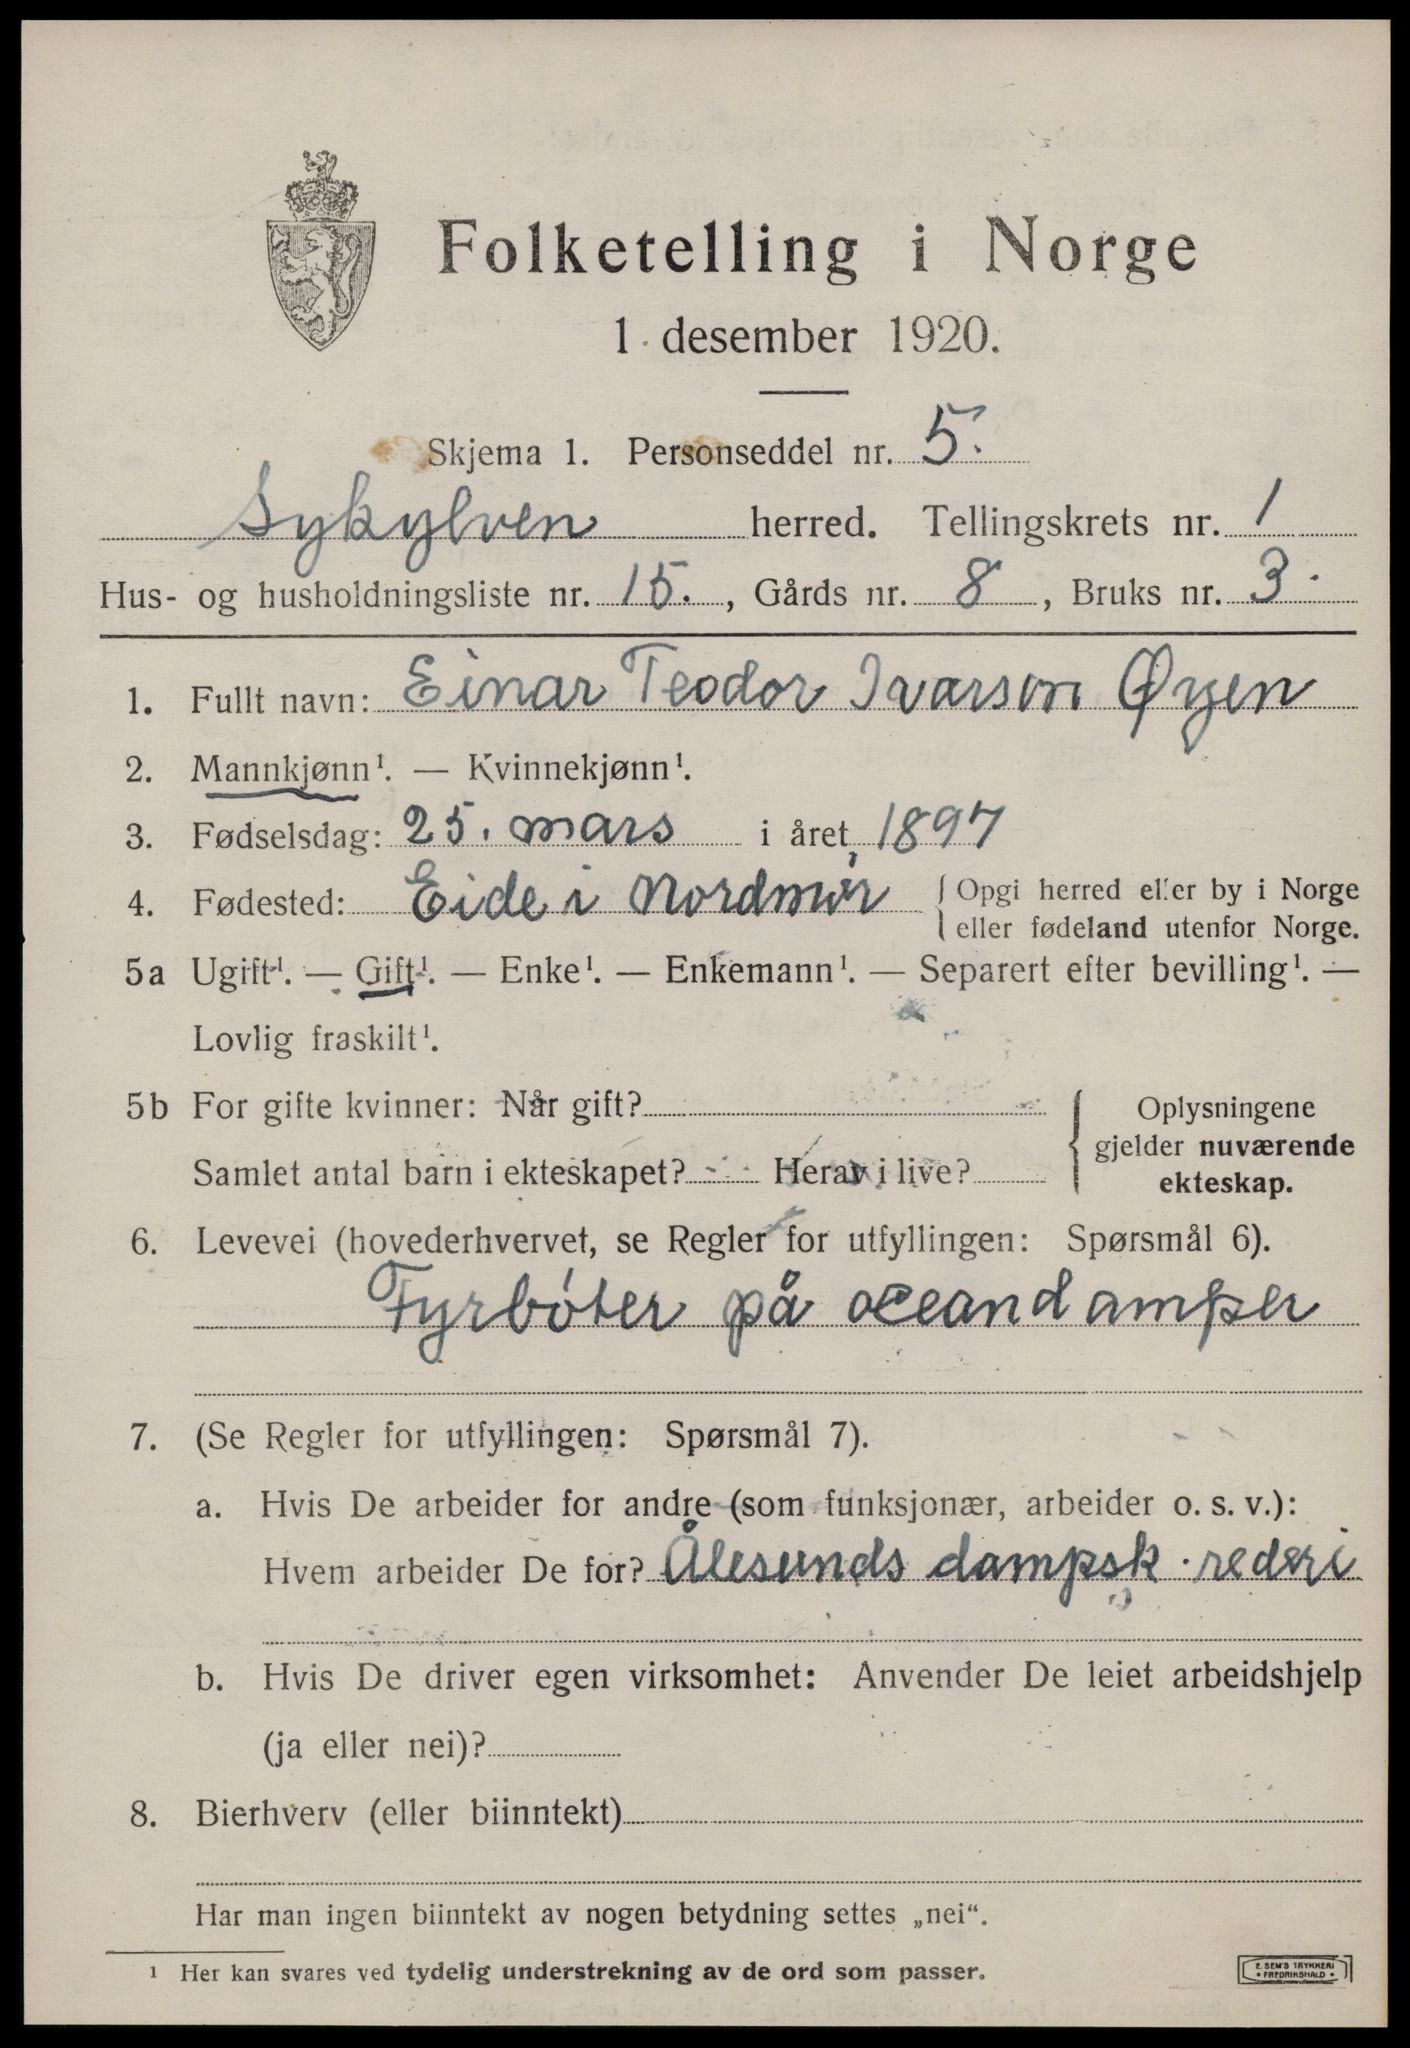 Folketelling i Norge
1. desember 1920.
Skjema 1. Personseddel nr. 5.
Sykylven herred. Tellingskrets nr. 1
Hus- og husholdningsliste nr. 15. , Gårds nr. 8 , Bruks nr. 3.
1. Fullt navn: Einar Teodor Ivarson Øyen
2. Mannkjønn¹. — Kvinnekjønn¹.
3. Fødselsdag: 25. mars i året 1897
4. Fødested: Eide i Nordmør { Opgi herred eller by i Norge
eller fødeland utenfor Norge.
5a Ugift¹. — Gift¹. — Enke¹. — Enkemann¹. — Separert efter bevilling¹. —
Lovlig fraskilt¹.
5b For gifte kvinner: Når gift?
Samlet antal barn i ekteskapet? Herav i live?
{ Oplysningene
gjelder nuværende
ekteskap.
6. Levevei (hovederhvervet, se Regler for utfyllingen: Spørsmål 6).
Fyrbøter på oceandamper
7. (Se Regler for utfyllingen: Spørsmål 7).
a. Hvis De arbeider for andre (som funksjonær, arbeider o. s. v.):
Hvem arbeider De for? Ålesunds dampsk. rederi
b. Hvis De driver egen virksomhet: Anvender De leiet arbeidshjelp
(ja eller nei)?
8. Bierhverv (eller biinntekt)
Har man ingen biinntekt av nogen betydning settes „nei“.
¹ Her kan svares ved tydelig understrekning av de ord som passer.
E. SEM'S TRYKKERI
• FREDRIKSHALD •